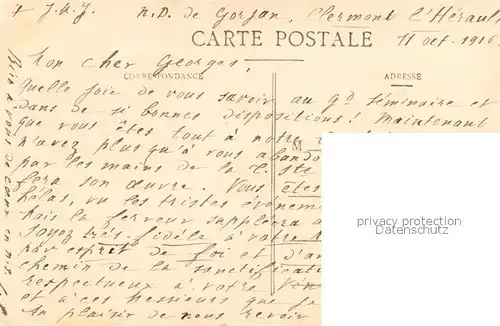 + J.M.J. N.D. de Gorjan, Clermont l'Hérault
CARTE POSTALE
11 oct. 1916
Mon cher Georges,
CORRESPONDANCE
ADRESSE
Quelle joie de vous savoir au gd séminaire et
dans de si bonnes dispositions ! Maintenant
que vous êtes tout à notre
n'avez plus qu'à vous abando
M
par les mains de la T. Ste
fera son œuvre. Vous êtes
hélas, vu les tristes événeme
Mais la ferveur suppléera
Soyez très fidèle à votre
par esprit de foi et d'a
chemin de la sanctificat
respectueux à votre Véné
et à ces Messieurs que je
Au plaisir de nous revoir
Bien à vous de cœur en N.S.
privacy protection
Datenschutz